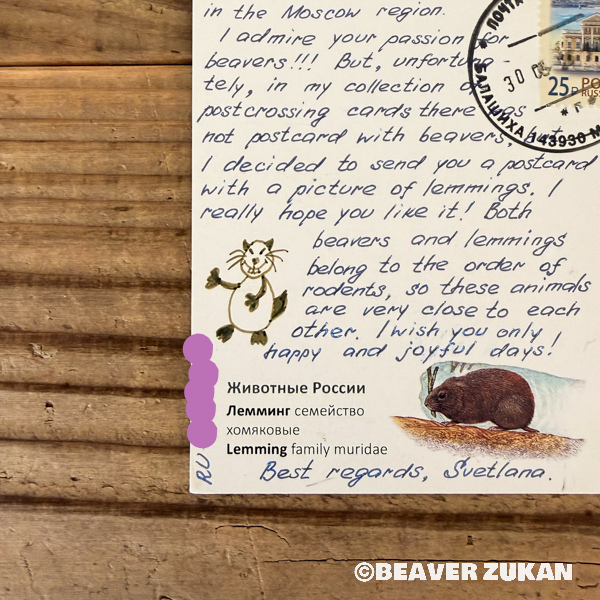 in the Moscow region.
I admire your passion for
beavers!!! But, unfortuna-
tely, in my collection of
postcrossing cards there was
not postcard with beavers, but
I decided to send you a postcard
with a picture of lemmings. I
really hope you like it! Both
beavers and lemmings
belong to the order of
rodents, so these animals
are very close to each
other. I wish you only
happy and joyful days!
ПОЧТА
30 06
БАЛАШИХА 143930
25р
RUSS
Животные России
Лемминг семейство
хомяковые
Lemming family muridae
Best regards, Svetlana.
RU
©BEAVER ZUKAN